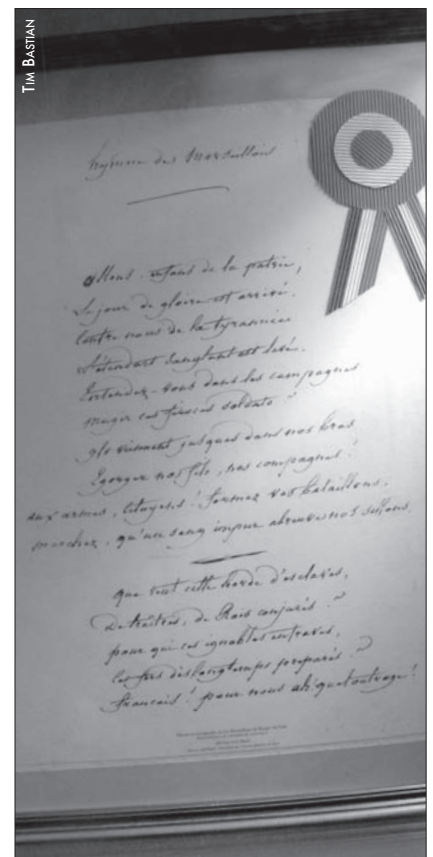 TIM BASTIAN
hymne des Marseillois
Allons, enfans de la patrie,
Le jour de gloire est arrivé.
Contre nous de la tyrannie
L'étendart Sanglant est levé.
Entendez-vous dans les campagnes
mugir ces féroces soldats ?
ils viennent jusques dans nos bras
Egorger nos fils, nos compagnes !
aux armes, Citoyens ! formez vos bataillons.
marchez, qu'un sang impur abreuve nos sillons.
que veut cette horde d'esclaves,
De traîtres, de Rois conjurés ?
pour qui ces ignobles entraves,
ces fers dès longtemps préparés ?
français ! pour nous ah ! quel outrage !